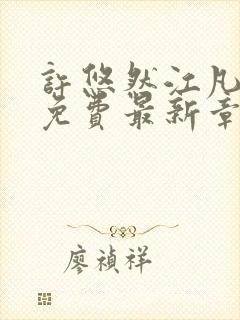 許悠然江凡
免費最新章
廖禎祥